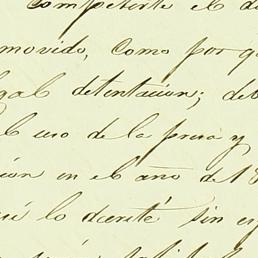 competente el d
movido, como por q
gal detentacion; deb
l uso de la presa y
cion en el año de 18
i lo decreté sin e